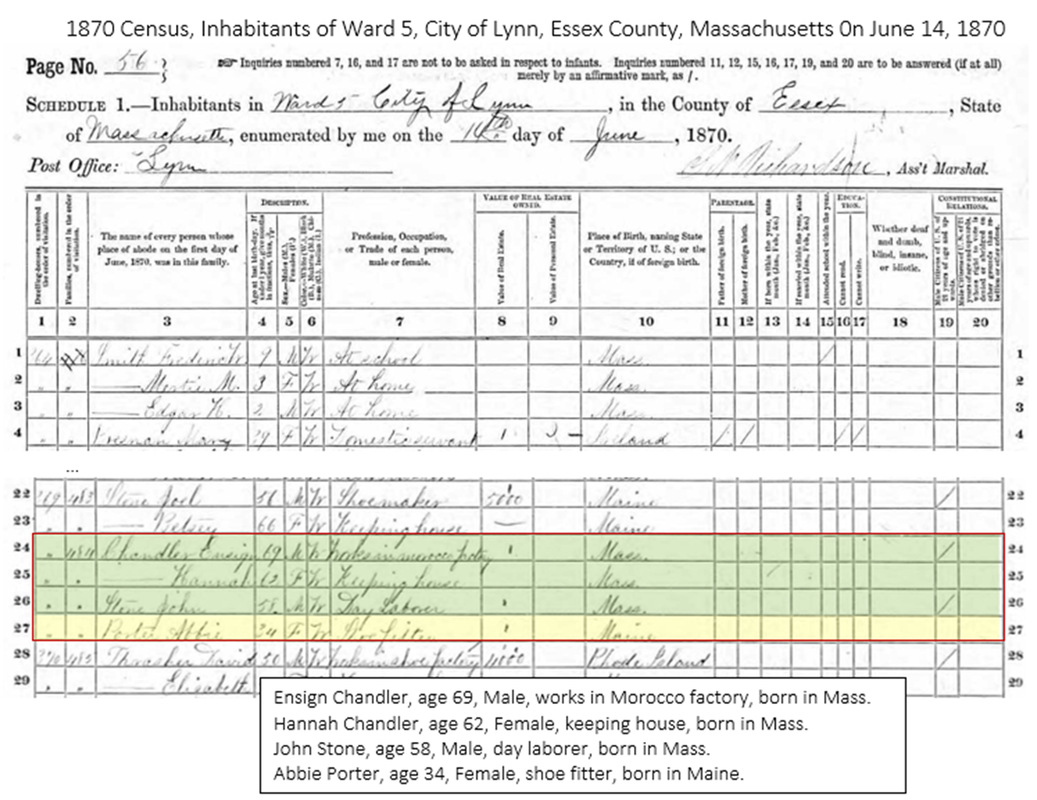 1870 Census, Inhabitants of Ward 5, City of Lynn, Essex County, Massachusetts 0n June 14, 1870
Page No. 56
☞ Inquiries numbered 7, 16, and 17 are not to be asked in respect to infants. Inquiries numbered 11, 12, 15, 16, 17, 19, and 20 are to be answered (if at all)
merely by an affirmative mark, as /.
SCHEDULE 1.—Inhabitants in Ward 5 City of Lynn, in the County of Essex, State
of Massachusetts, enumerated by me on the 14th day of June, 1870.
Post Office: Lynn
Richardson, Ass't Marshal.
DESCRIPTION.
VALUE OF REAL ESTATE OWNED.
PARENTAGE.
EDUCATION.
CONSTITUTIONAL RELATIONS.
Dwelling-houses, numbered in the order of visitation.
Families, numbered in the order of visitation.
The name of every person whose place of abode on the first day of June, 1870, was in this family.
Profession, Occupation, or Trade of each person, male or female.
Value of Real Estate.
Value of Personal Estate.
Place of Birth, naming State or Territory of U. S.; or the Country, if of foreign birth.
Father of foreign birth.
Mother of foreign birth.
Attended school within the year.
Cannot read.
Cannot write.
Whether deaf and dumb, blind, insane, or idiotic.
1 2 3 4 5 6 7 8 9 10 11 12 13 14 15 16 17 18 19 20
1 Smith Frederick 9 M W At school Mass. / 1
2 —— M. 3 F W At home Mass. 2
3 —— Edgar H. 2 M W At home Mass. 3
4 Mary 29 F W Domestic servant Ireland / / / / 4
...
22 483 Stone Joel M W Shoemaker 5000 Maine / 22
23 —— Betsey 66 F W Keeping house Maine 23
24 484 Chandler Ensign 69 M W Works in morocco factory Mass. / 24
25 —— Hannah 62 F W Keeping house Mass. 25
26 Stone John 58 M W Day Laborer Mass. / 26
27 Porter Abbie 34 F W Shoe fitter Maine 27
28 485 Thrasher David 50 M W Works in shoe factory Rhode Island / 28
29 —— Elizabeth 29
Ensign Chandler, age 69, Male, works in Morocco factory, born in Mass.
Hannah Chandler, age 62, Female, keeping house, born in Mass.
John Stone, age 58, Male, day laborer, born in Mass.
Abbie Porter, age 34, Female, shoe fitter, born in Maine.